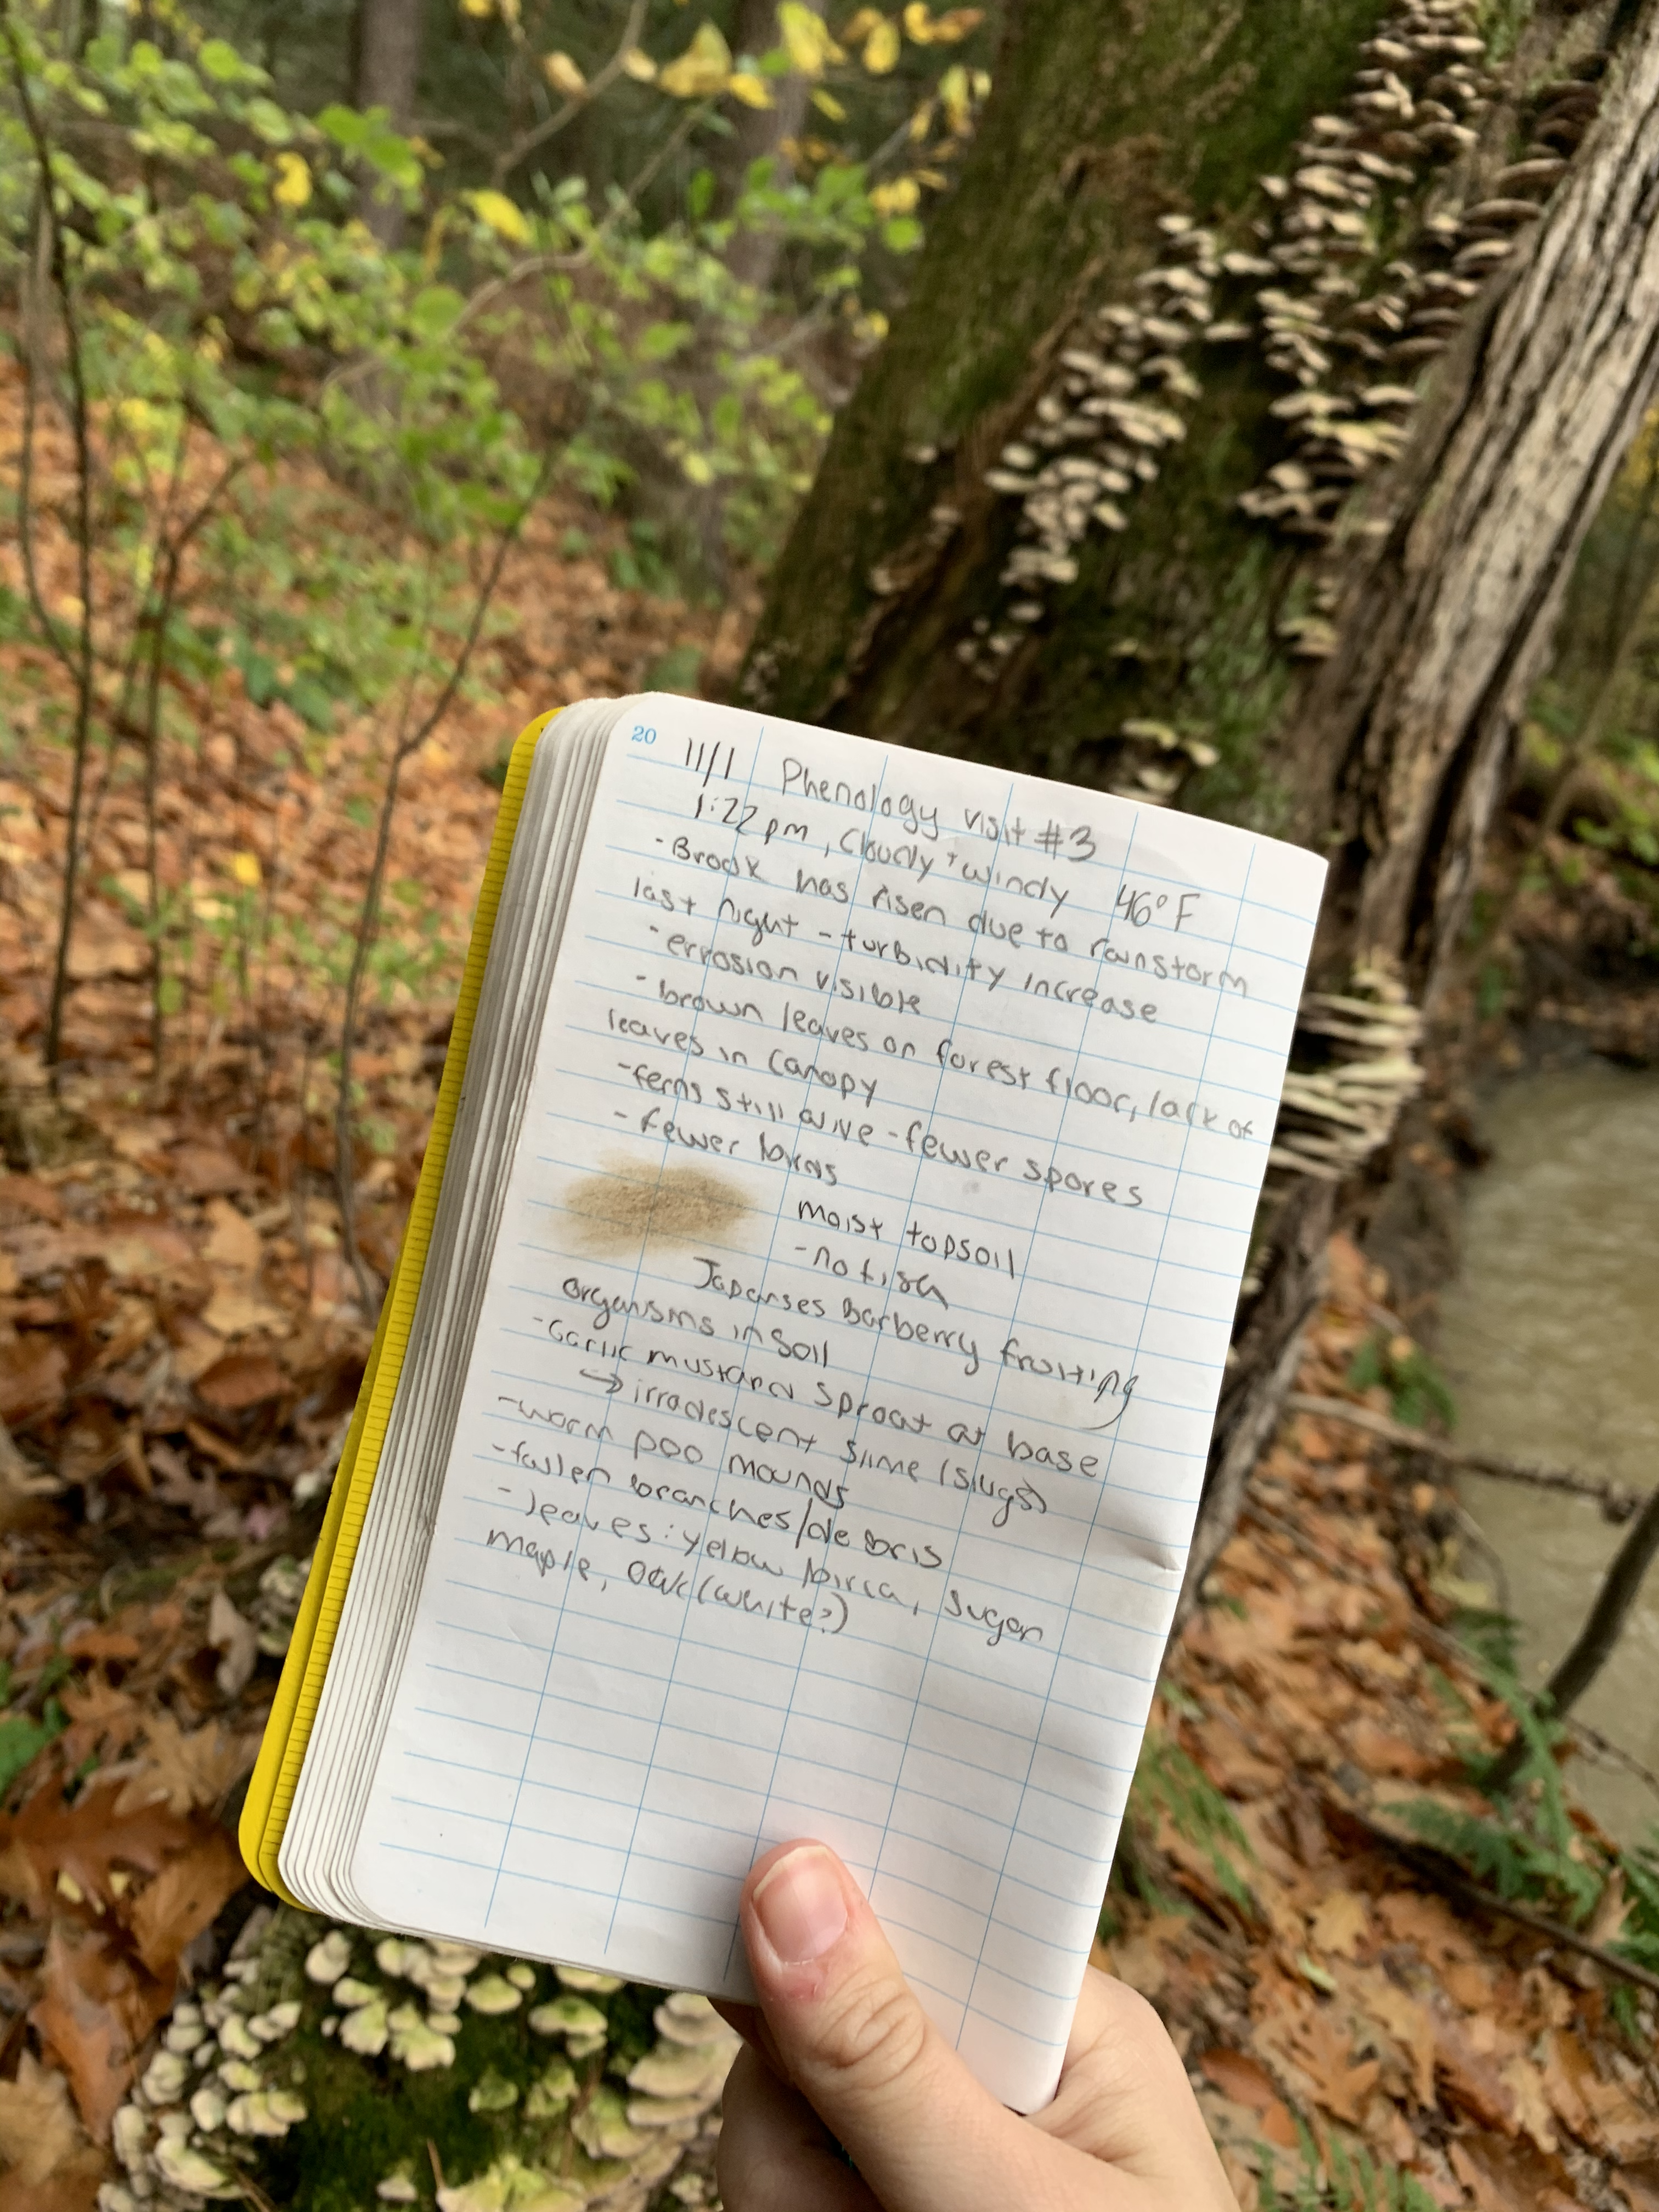 20
11/1 Phenology visit #3
1:22 pm, Cloudy + windy 46°F
-Brook has risen due to rainstorm
last night - turbidity increase
-errosion visible
-brown leaves on forest floor, lack of
leaves in canopy
-ferns still alive - fewer spores
-fewer birds
moist topsoil
-no fish
Japanses Barberry fruiting
organisms in soil
-Garlic mustard sproat at base
→ irradescent slime (slugs)
-worm poo mounds
-fallen branches/debris
-leaves: yellow birch, sugar
maple, oak (white?)